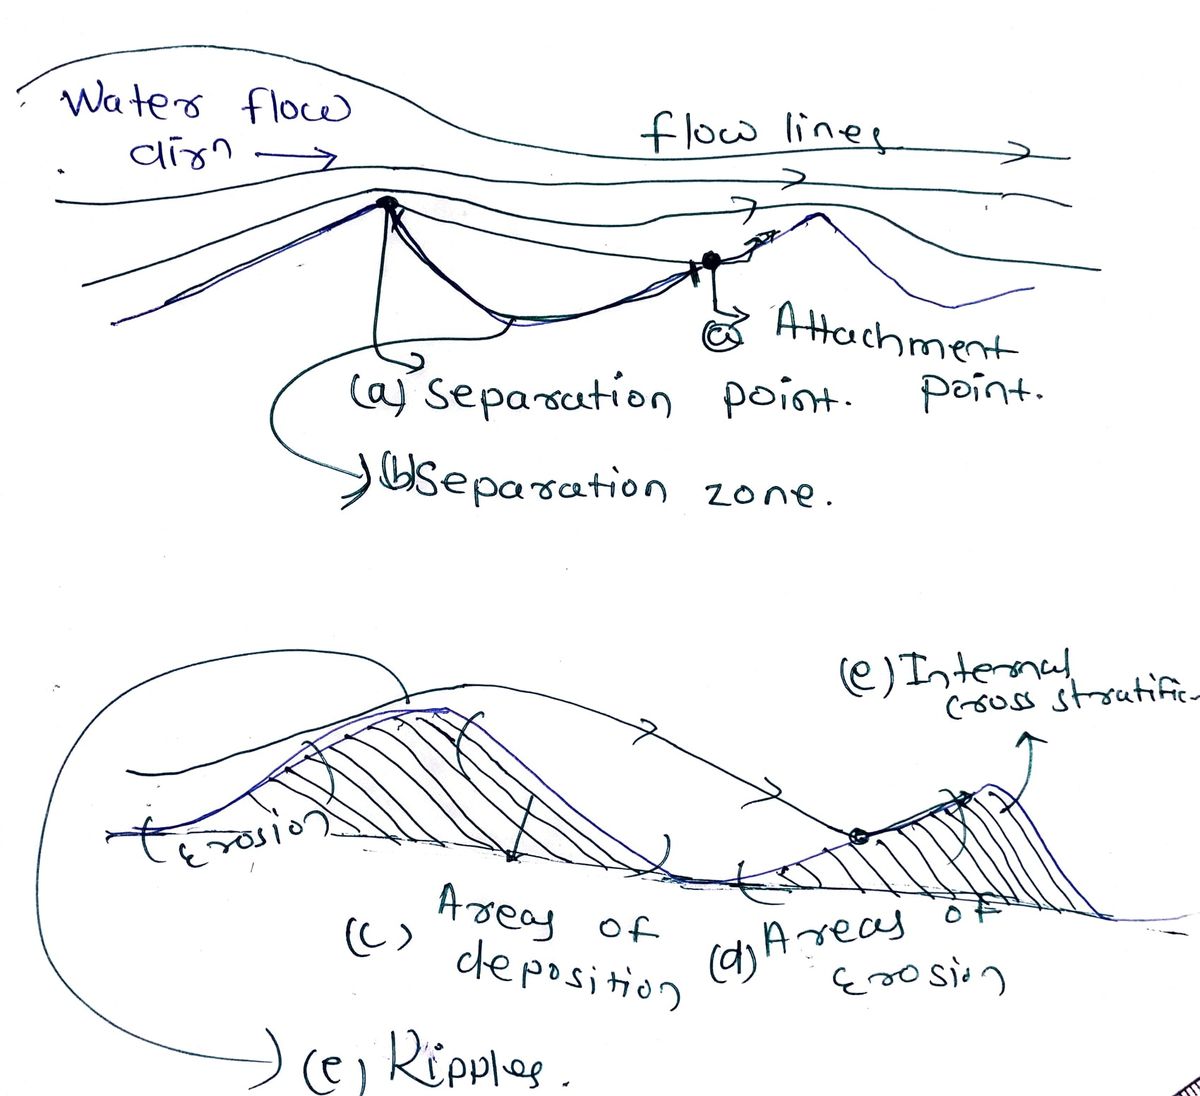 Water flow
dirn
flow lines
(a) Attachment
point.
(a) Separation point.
(b) Separation zone.
(e) Internal
cross stratific-
Erosion
(c) Areas of
deposition
(d) Areas of
Erosion
(e) Ripples.